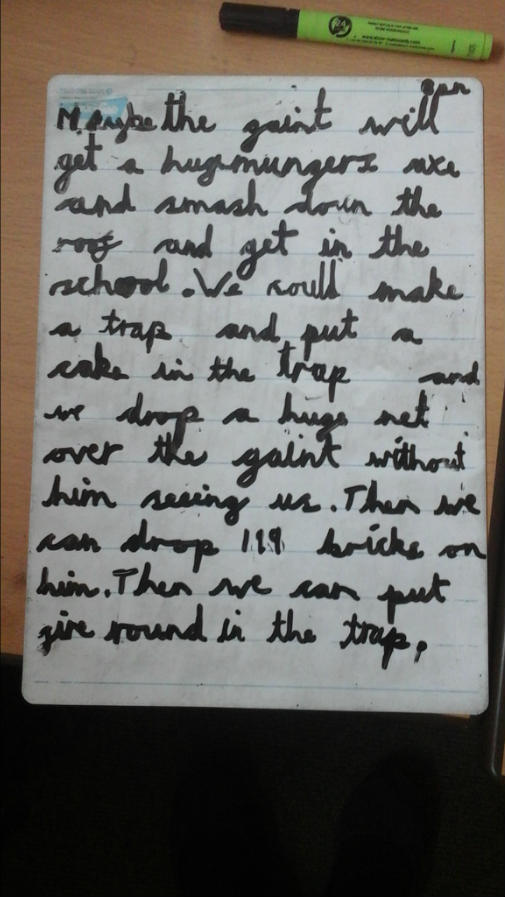 Maybe the gaint will
get a hugimungers axe
and smash down the
roof and get in the
school. We coull make
a trap and put a
cake in the trap and
we drop a huge net
over the gaint without
him seeing us. Then we
can drop 119 bricks on
him. Then we can put
fire round in the trap.